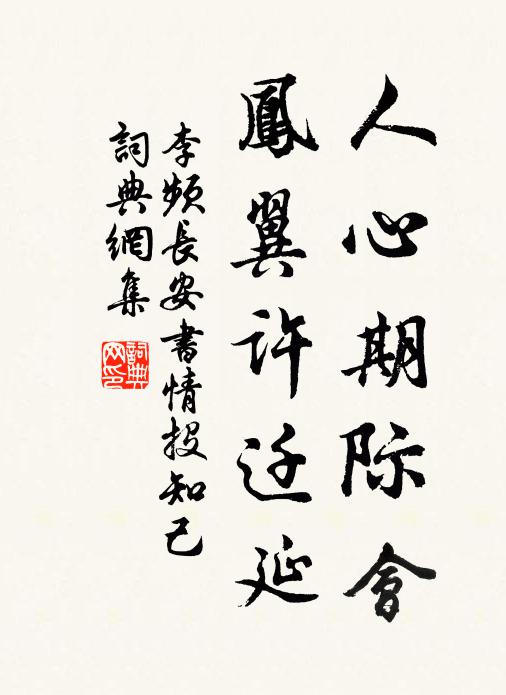 人心期际會
鳳翼許迁延
李频長安書情投知己
詞典網集
詞典网印